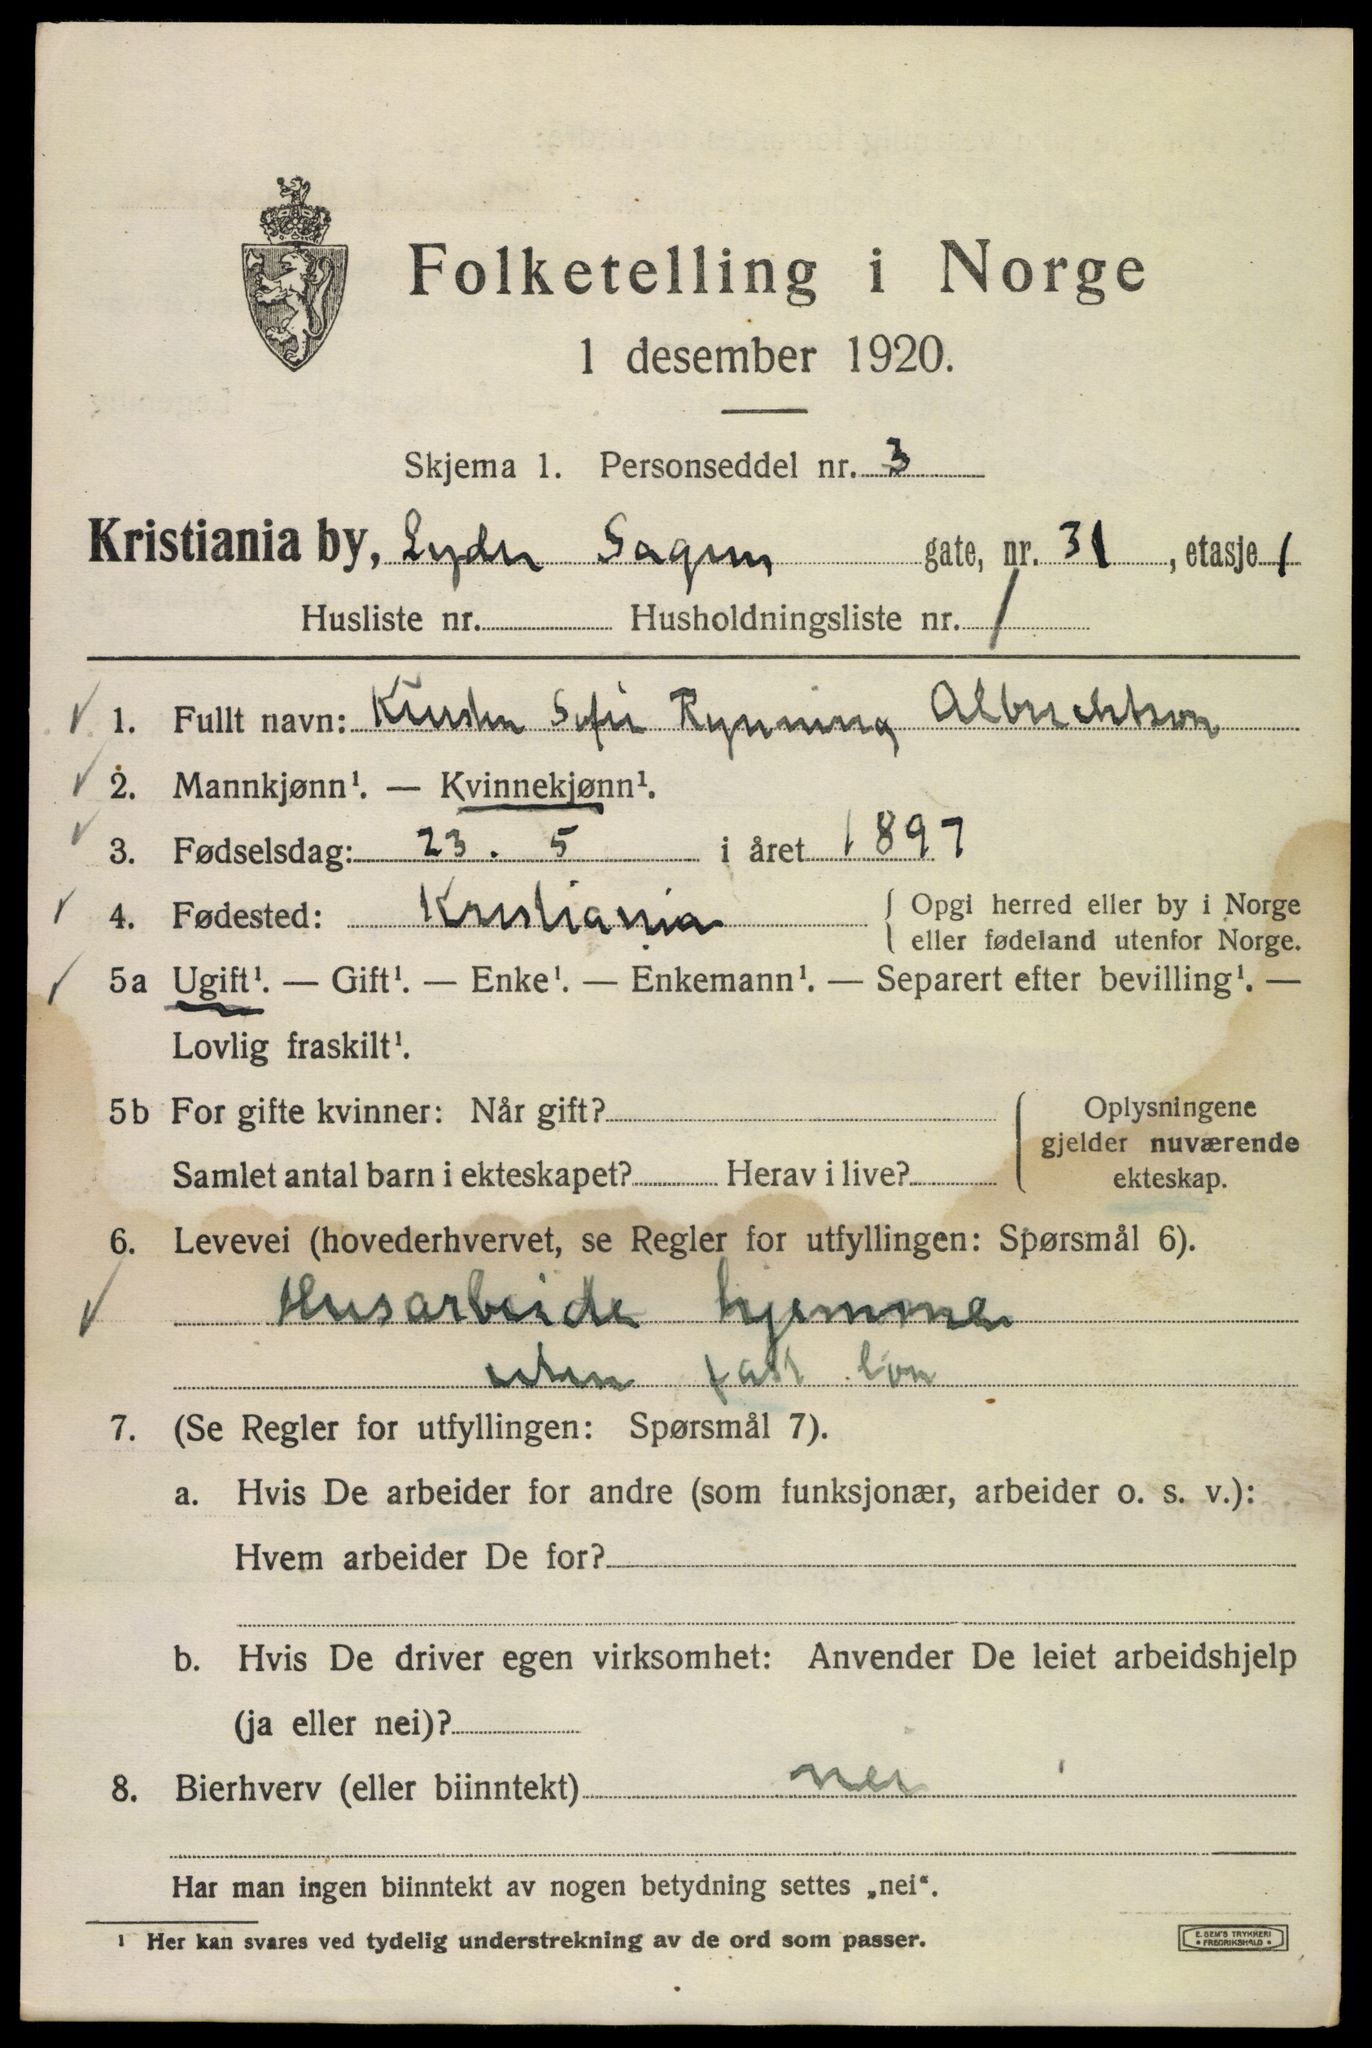 Folketelling i Norge
1 desember 1920.
Skjema 1. Personseddel nr. 3
Kristiania by, Lyder Sagens gate, nr. 31, etasje 1
Husliste nr. Husholdningsliste nr. 1
1. Fullt navn: Kirsten Sofie Rynning Albrechtson
2. Mannkjønn¹. — Kvinnekjønn¹.
3. Fødselsdag: 23. 5 i året 1897
4. Fødested: Kristiania { Opgi herred eller by i Norge
eller fødeland utenfor Norge.
5a Ugift¹. — Gift¹. — Enke¹. — Enkemann¹. — Separert efter bevilling¹. —
Lovlig fraskilt¹.
5b For gifte kvinner: Når gift? Oplysningene
gjelder nuværende
Samlet antal barn i ekteskapet? Herav i live? ekteskap.
6. Levevei (hovederhvervet, se Regler for utfyllingen: Spørsmål 6).
Husarbeide hjemme
uten fast løn
7. (Se Regler for utfyllingen: Spørsmål 7).
a. Hvis De arbeider for andre (som funksjonær, arbeider o. s. v.):
Hvem arbeider De for?
b. Hvis De driver egen virksomhet: Anvender De leiet arbeidshjelp
(ja eller nei)?
8. Bierhverv (eller biinntekt) nei
Har man ingen biinntekt av nogen betydning settes „nei“.
¹ Her kan svares ved tydelig understrekning av de ord som passer.
E. SEM'S TRYKKERI
• FREDRIKSHALD •